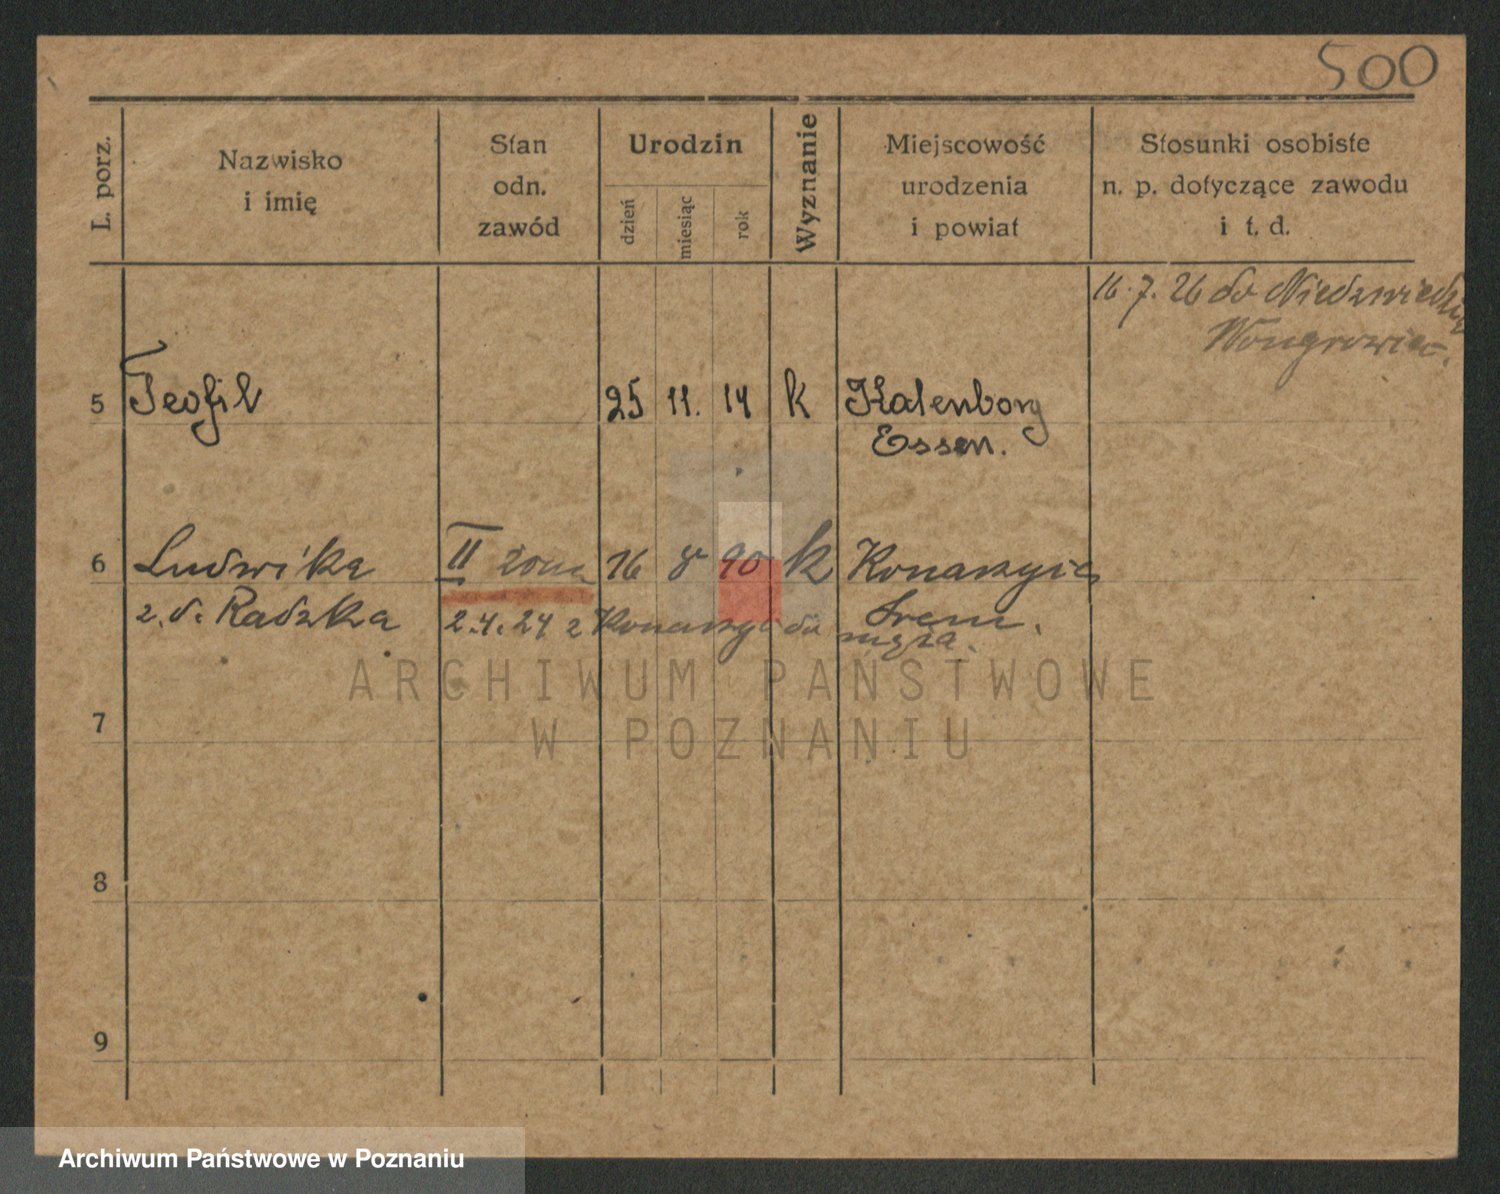 500
L. porz.
Nazwisko
i imię
Stan
odn.
zawód
Urodzin
dzień
miesiąc
rok
Wyznanie
Miejscowość
urodzenia
i powiat
Stosunki osobiste
n. p. dotyczące zawodu
i t. d.
16. 7. 26 do
Wongrowiec.
5 Teofil 25 11. 14 k Katenborg
Essen.
6 Ludwika II żona 16 8 90 k
z. d. Radzka 2.4.24 z do Srem.
męża.
7
8
9
ARCHIWUM PAŃSTWOWE
W POZNANIU
Archiwum Państwowe w Poznaniu